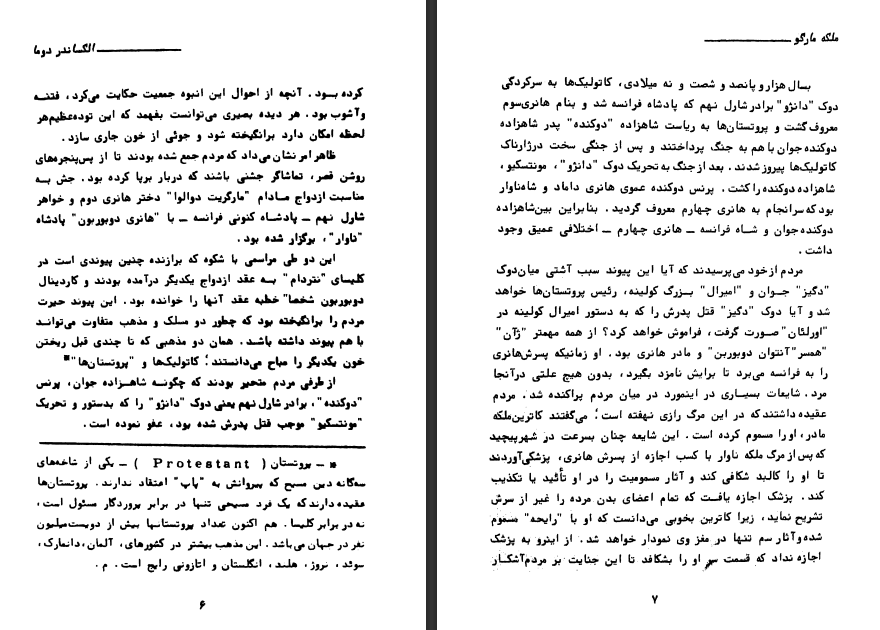 الکساندر دوما
کرده بود. آنچه از احوال این انبوه جمعیت حکایت می‌کرد، فتنه
وآشوب بود. هر دیده بصیری می‌توانست بفهمد که این توده‌عظیم‌هر
لحظه امکان دارد برانگیخته شود و جوئی از خون جاری سازد.
ظاهر امر نشان می‌داد که مردم جمع شده بودند تا از پس‌پنجره‌های
روشن قصر، تماشاگر جشنی باشند که دربار برپا کرده بود. جش به
مناسبت ازدواج مادام "مارگریت دوالوا" دختر هانری دوم و خواهر
شارل نهم ـ پادشاه کنونی فرانسه ـ با "هانری دوبوربون" پادشاه
"ناوار"، برگزار شده بود.
این دو طی مراسمی با شکوه که برازنده چنین پیوندی است در
کلیسای "نتردام" به عقد ازدواج یکدیگر درآمده بودند و کاردینال
دوبوربون شخصا" خطبه عقد آنها را خوانده بود. این پیوند حیرت
مردم را برانگیخته بود که چطور دو مسلک و مذهب متفاوت می‌توانند
با هم پیوند داشته باشند. همان دو مذهبی که تا چندی قبل ریختن
خون یکدیگر را مباح می‌دانستند؛ کاتولیک‌ها و "پروتستان‌ها"*
از طرفی مردم متحیر بودند که چگونه شاهزاده جوان، پرنس
"دوکنده"، برادر شارل نهم یعنی دوک "دانژو" را که بدستور و تحریک
"مونتسکیو" موجب قتل پدرش شده بود، عفو نموده است.
* ـ پروتستان ( Protestant ) ـ یکی از شاخه‌های
سه‌گانه دین مسیح که پیروانش به "پاپ" اعتقاد ندارند. پروتستان‌ها
عقیده دارند که یک فرد مسیحی تنها در برابر پروردگار مسئول است،
نه در برابر کلیسا. هم اکنون تعداد پروتستانها بیش از دویست‌میلیون
نفر در جهان می‌باشد. این مذهب بیشتر در کشورهای، آلمان، دانمارک،
سوئد، نروژ، هلند، انگلستان و اتازونی رایج است. م.
۶
ملکه مارگو
بسال هزار و پانصد و شصت و نه میلادی، کاتولیک‌ها به سرکردگی
دوک "دانژو" برادر شارل نهم که پادشاه فرانسه شد و بنام هانری‌سوم
معروف گشت و پروتستان‌ها به ریاست شاهزاده "دوکنده" پدر شاهزاده
دوکنده جوان با هم به جنگ پرداختند و پس از جنگی سخت درژارناک
کاتولیک‌ها پیروز شدند. بعد از جنگ به تحریک دوک "دانژو"، مونتسکیو،
شاهزاده دوکنده را کشت. پرنس دوکنده عموی هانری داماد و شاه‌ناوار
بود که سرانجام به هانری چهارم معروف گردید. بنابراین بین‌شاهزاده
دوکنده جوان و شاه فرانسه ـ هانری چهارم ـ اختلافی عمیق وجود
داشت.
مردم از خود می‌پرسیدند که آیا این پیوند سبب آشتی میان‌دوک
"دگیز" جوان و "امیرال" بزرگ کولینه، رئیس پروتستان‌ها خواهد
شد و آیا دوک "دگیز" قتل پدرش را که به دستور امیرال کولینه در
"اورلئان" صورت گرفت، فراموش خواهد کرد؟ از همه مهمتر "ژآن"
"همسر" آنتوان دوبوربن" و مادر هانری بود. او زمانیکه پسرش‌هانری
را به فرانسه می‌برد تا برایش نامزد بگیرد، بدون هیچ علتی درآنجا
مرد. شایعات بسیاری در اینمورد در میان مردم پراکنده شد. مردم
عقیده داشتند که در این مرگ رازی نهفته است؛ می‌گفتند کاترین‌ملکه
مادر، او را مسموم کرده است. این شایعه چنان بسرعت در شهرپیچید
که پس از مرگ ملکه ناوار با کسب اجازه از پسرش هانری، پزشکی‌آوردند
تا او را کالبد شکافی کند و آثار مسمومیت را در او تأئید یا تکذیب
کند. پزشک اجازه یافت که تمام اعضای بدن مرده را غیر از سرش
تشریح نماید، زیرا کاترین بخوبی می‌دانست که او با "رایحه" مسموم
شده و آثار سم تنها در مغز وی نمودار خواهد شد. از اینرو به پزشک
اجازه نداد که قسمت سر او را بشکافد تا این جنایت بر مردم‌آشکار
۷